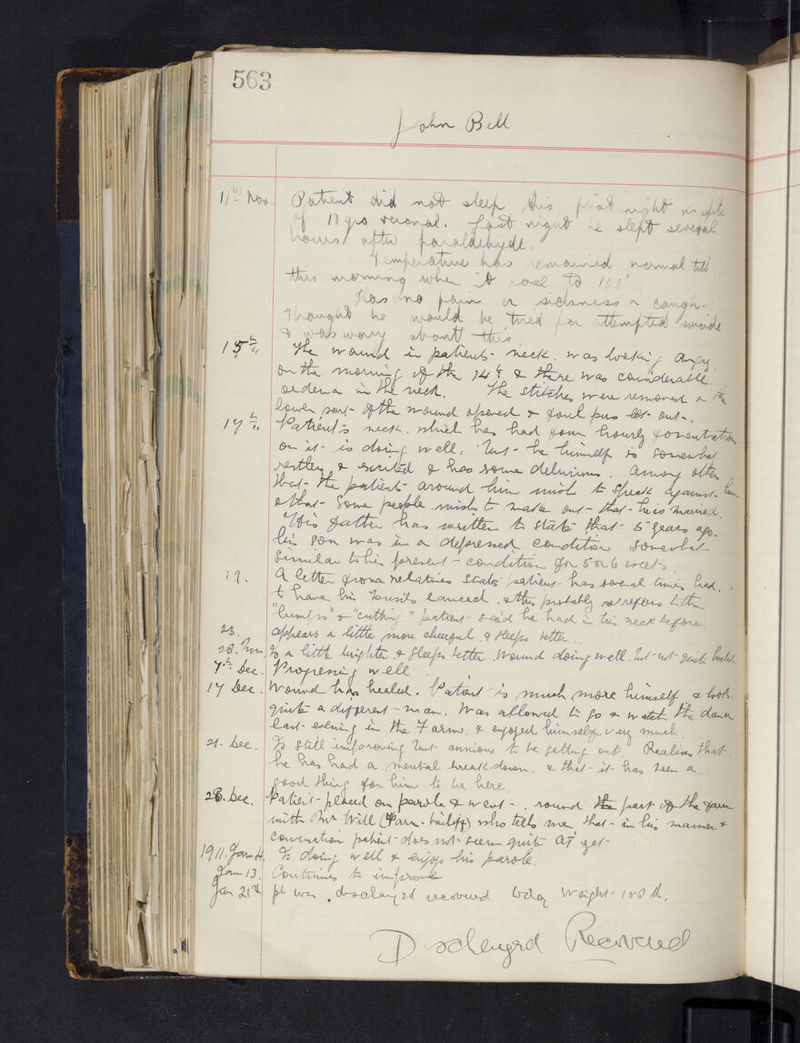 563
John Bell
11th Nov. Patient did not sleep his first night in spite
of 11 grs veronal. Last night he slept several
hours after paraldehyde.
Temperature has remained normal till
this morning when it rose to 100°
Has no pain or sickness or cough.
Thought he would be tried for attempted suicide
& was worry about this.
15th " The wound in patient's neck was looking angry
on the morning of the 14th & there was considerable
oedema in the neck. The stitches were removed & the
lower part of the wound opened & foul pus let out.
17th " Patient's neck which has had four hourly fomentations
on it is doing well. But he himself is somewhat
restless & excited & has some delusions. Among others
that the patients around him wish to speak against him
& that some people wish to make out that he is married.
His father has written to state that 5 years ago
his son was in a depressed condition somewhat
similar to his present condition for 5 or 6 weeks.
19. A letter from a relative states patient has several times had
to have his tonsils lanced & this probably refers to the
"lumps" & "cutting" patient said he had in his neck before.
23. Appears a little more cheerful & sleeps better.
28. Nov. Is a little brighter & sleeps better. Wound doing well but not quite healed
7th Dec. Progressing well
14 Dec. Wound has healed. Patient is much more himself & looks
quite a different man. Was allowed to go & watch the dance
last evening in the Farm & enjoyed himself very much.
21. Dec. Is still improving but anxious to be getting out. Realises that
he has had a mental breakdown & that it has been a
good thing for him to be here.
28. Dec. Patient placed on parole & went round the part of the farm
with Mr Will (Farm-bailiff) who tells me that in his manner &
conversation patient does not seem quite right yet
1911. Jan 4. Is doing well & enjoys his parole.
Jan 13. Continues to improve
Jan 21st pt was discharged recovered today Weight 158 lb.
Discharged Recovered